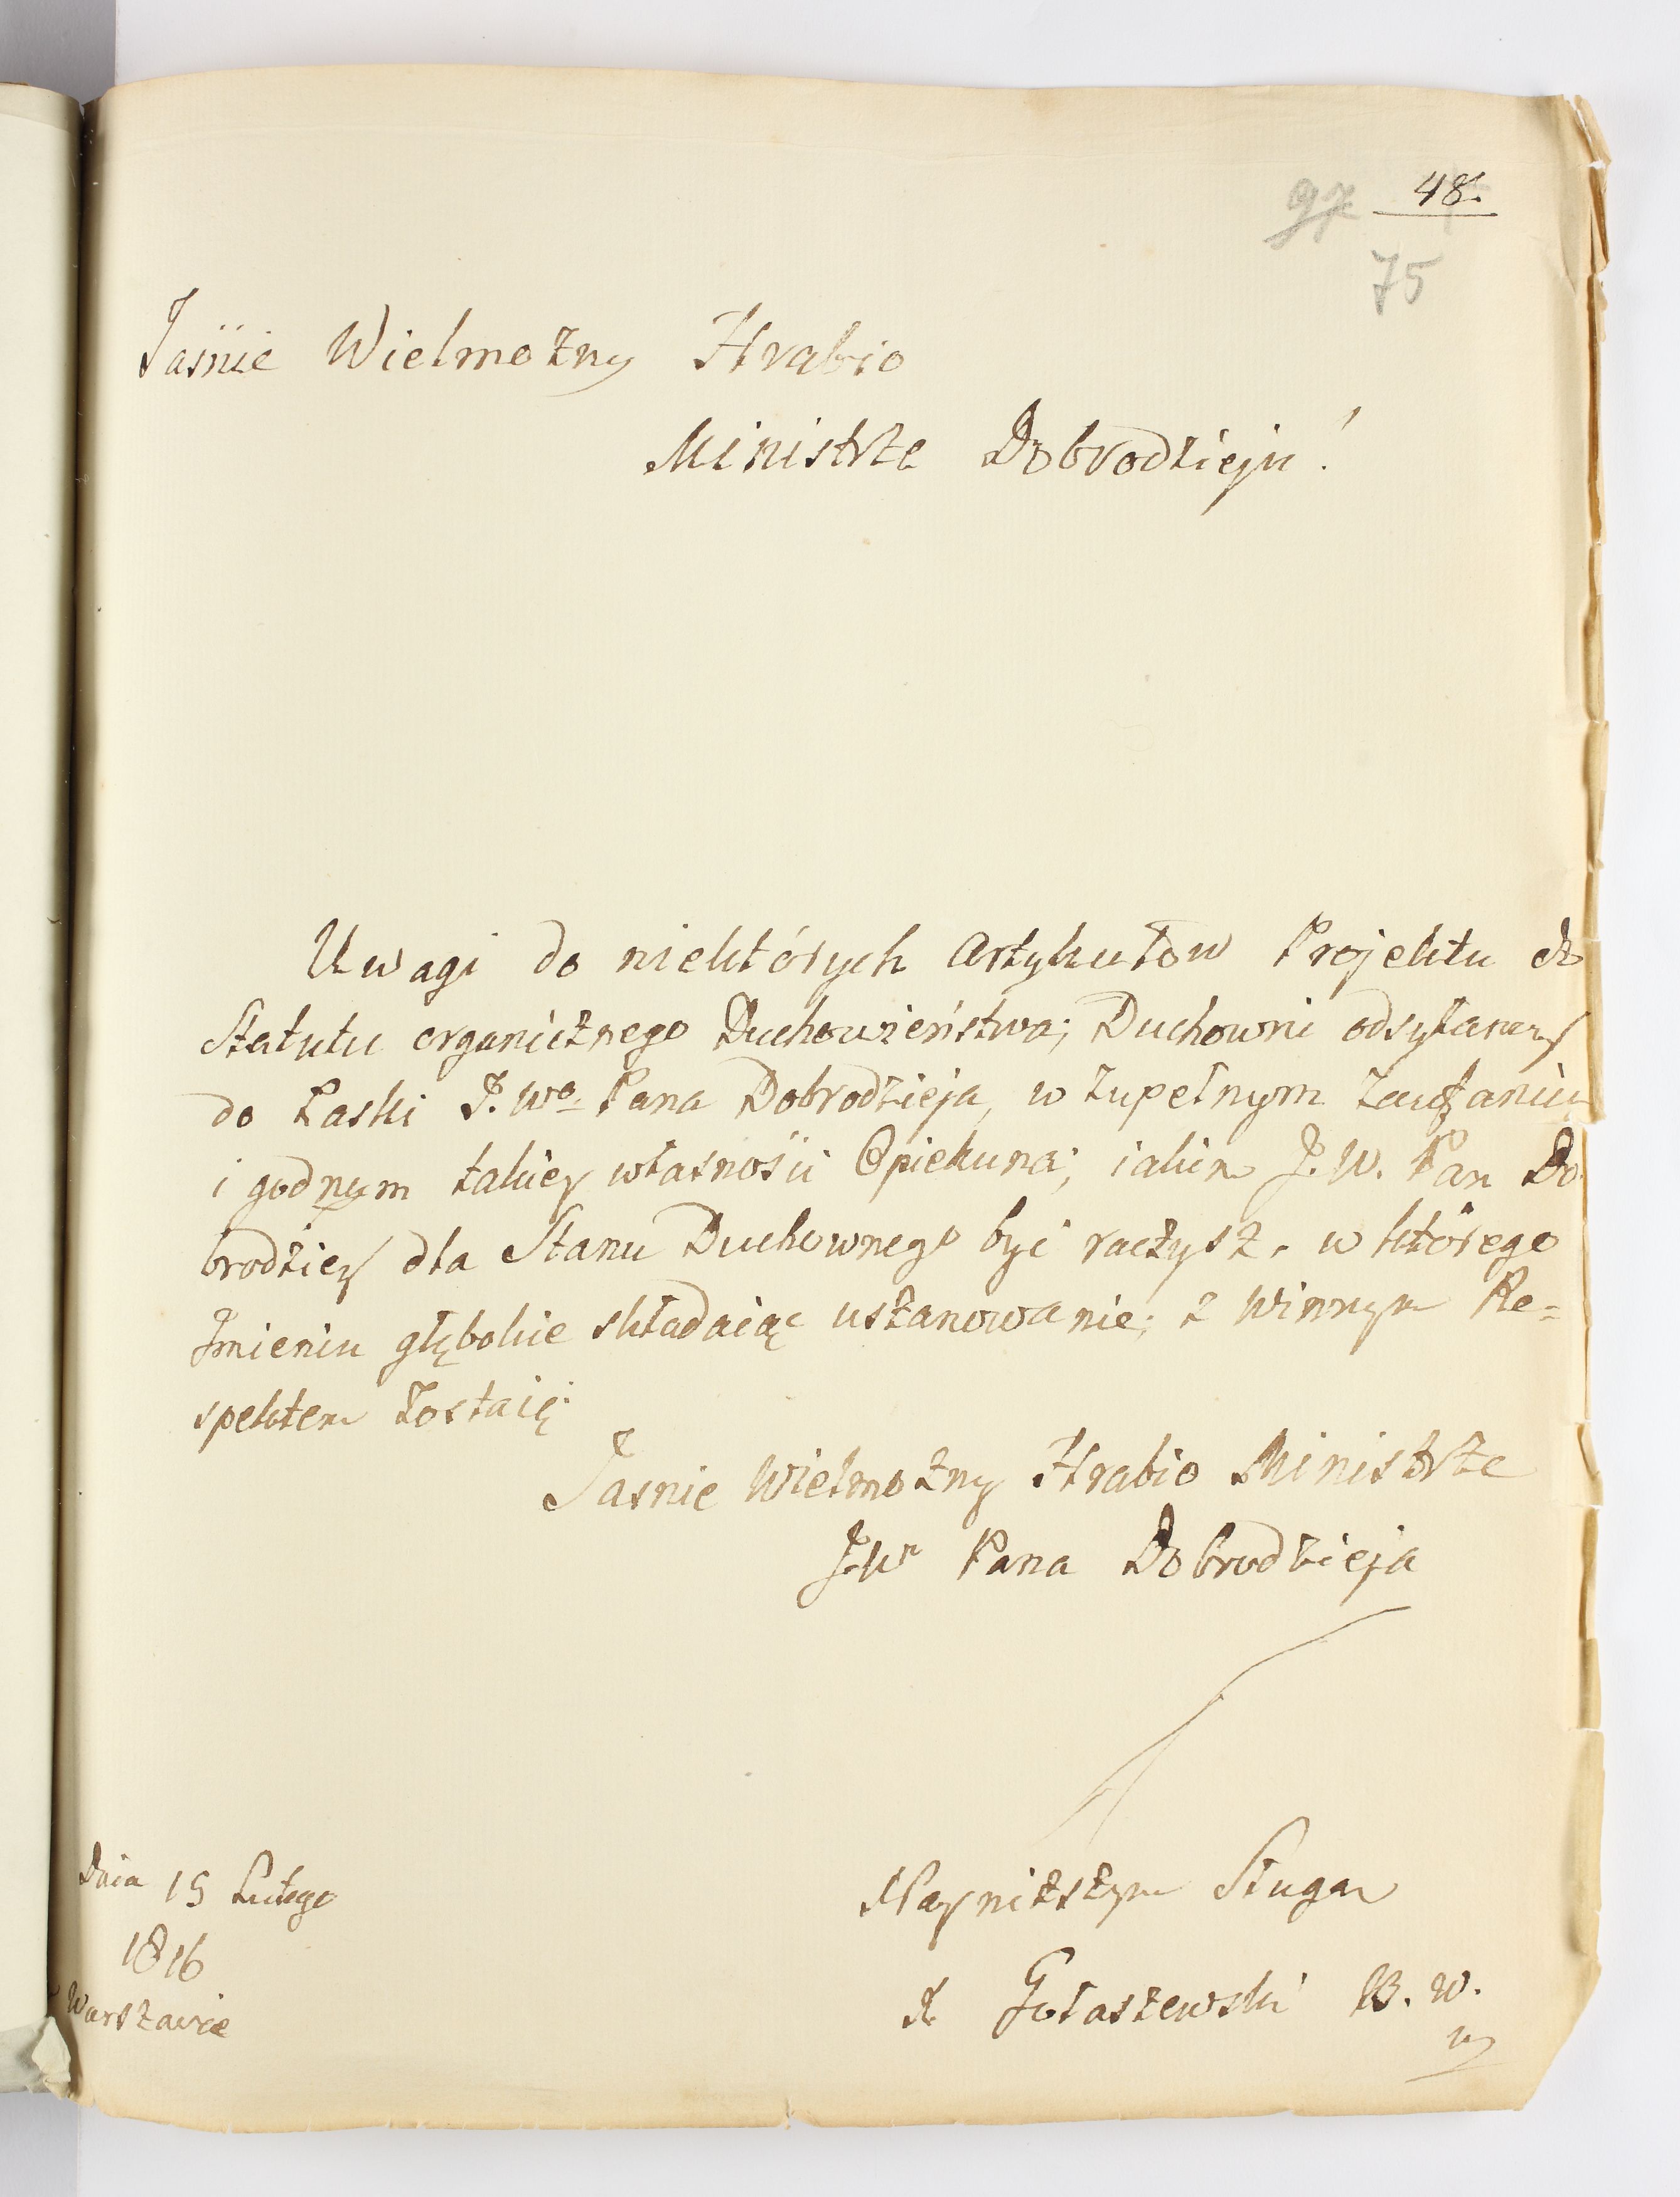 97 48.
75
Jaśnie Wielmożny Hrabio
Ministrze Dobrodzieju!
Uwagi do niektórych Artykułow Projektu do
Statutu organicznego Duchowieństwa; Duchowni odsyłamy
do Łaski J.Wo. Pana Dobrodzieja, w zupełnym zaufaniu
i godnym takiey własności Opiekuna; iakim J.W. Pan Do
brodziey dla Stanu Duchownego być raczysz, w którego
Imieniu głębokie składaiąc uszanowanie; z winnym Re=
spektem zostaię:
Jasnie Wielmożny Hrabio Ministrze
JW Pana Dobrodzieja
Nayniższym Sługą
Dnia 15 Lutego
1816
Warszawie
A Gołaszewski B. W.